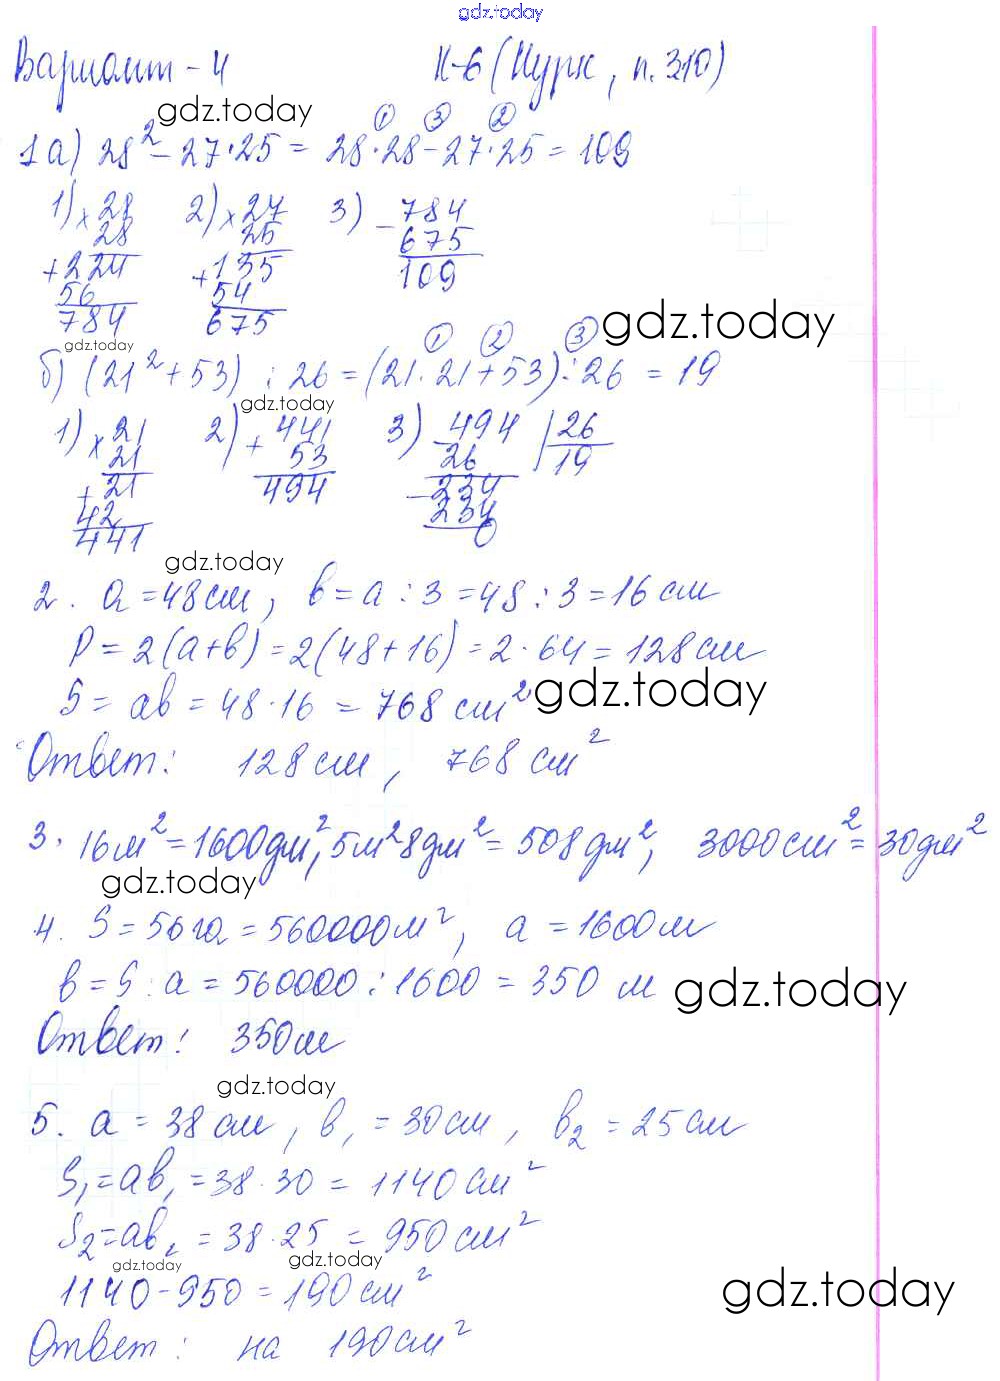 gdz.today
Вариант - 4 К-6 (Нурк, п. 310)
gdz.today
① ③ ②
1 а) 28² - 27·25 = 28·28 - 27·25 = 109
1) × 28 2) × 27 3) - 784
28 25 675
+ 224 + 135 109
56 54
784 675
gdz.today
gdz.today
① ② ③
б) (21² + 53) : 26 = (21·21 + 53) : 26 = 19
gdz.today
1) × 21 2) + 441 3) 494 | 26
21 53 26 19
+ 21 494 - 234
42 234
441 0
gdz.today
2. a = 48 см, в = a : 3 = 48 : 3 = 16 см
P = 2(a+в) = 2(48+16) = 2·64 = 128 см
S = aв = 48·16 = 768 см²
gdz.today
Ответ: 128 см, 768 см²
3. 16м² = 1600дм², 5м² 8дм² = 508дм², 3000см² = 30дм²
gdz.today
4. S = 56 га = 560000м², a = 1600м
в = S : a = 560000 : 1600 = 350 м
gdz.today
Ответ: 350м
gdz.today
5. a = 38 см, в₁ = 30см, в₂ = 25 см
S₁ = aв₁ = 38·30 = 1140 см²
S₂ = aв₂ = 38·25 = 950 см²
gdz.today gdz.today
1140 - 950 = 190 см²
gdz.today
Ответ: на 190см²